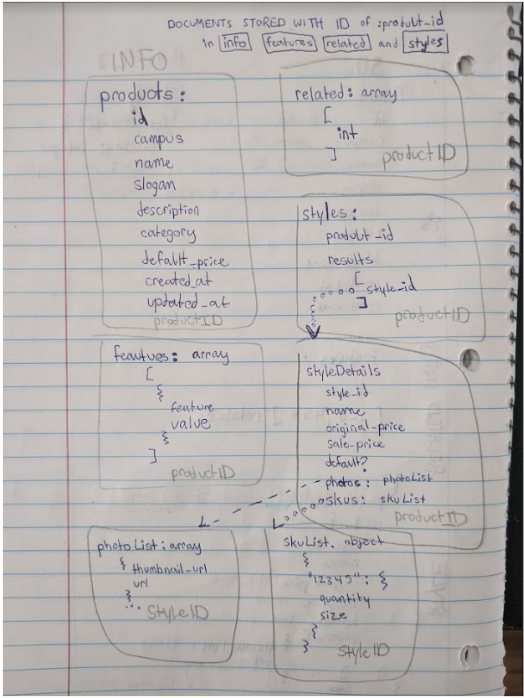 DOCUMENTS STORED WITH ID of :product-id
in info features related and styles
INFO
products:
id
campus
name
slogan
description
category
default_price
created_at
updated_at
productID
related: array
[
int
]
productID
styles:
product-id
results
[
style-id
]
productID
features: array
[
{
feature
value
}
]
productID
styleDetails
style-id
name
original-price
sale-price
default?
photos: photoList
skus: skuList
productID
photoList: array
{ thumbnail-url
url
}
... StyleID
skuList: object
{
"12345": {
quantity
size
}
}
StyleID